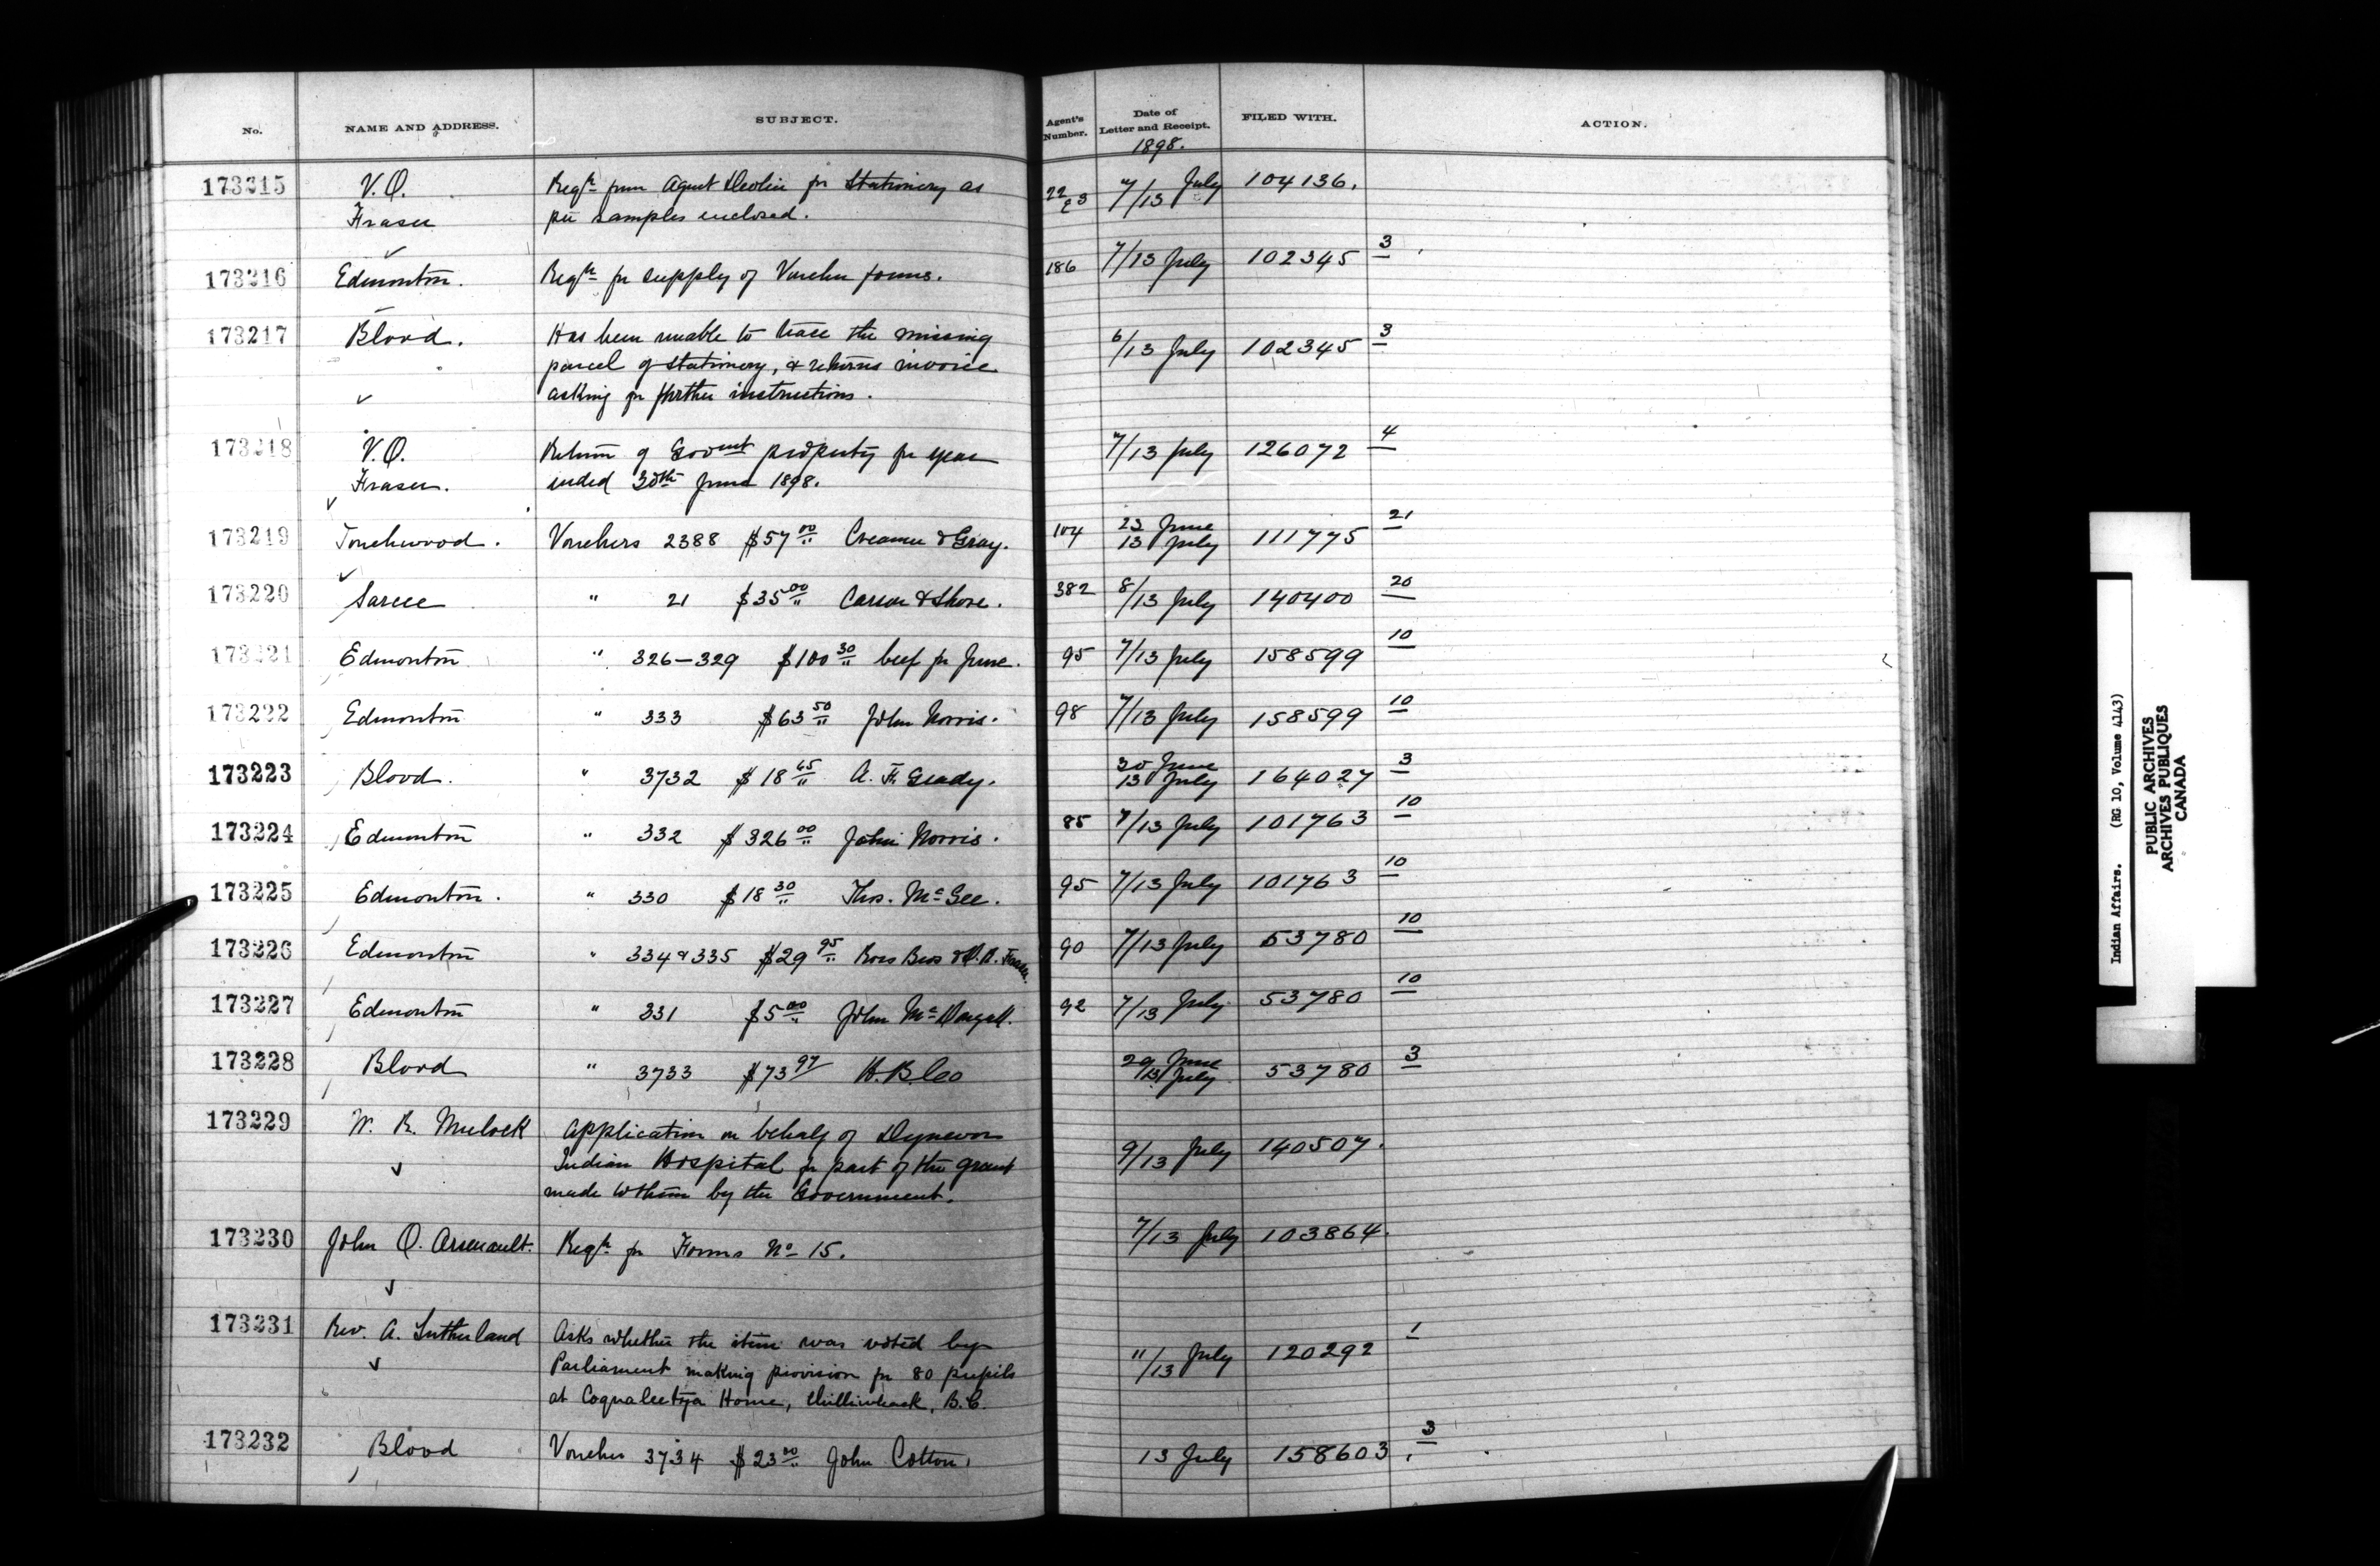 No. NAME AND ADDRESS. SUBJECT. Agent's Number. Date of Letter and Receipt. FILED WITH. ACTION.
1898.
173215 V.O. Reqn from Agent Devlin for Stationery as 22 E3 7/13 July 104136.
Fraser per samples enclosed.
173216 Edmonton. Reqn for supply of Voucher forms. 186 7/13 July 102345 3
173217 Blood. Has been unable to trace the missing 6/13 July 102345 3
parcel of stationery, & returns invoice
asking for further instructions.
173218 V.O. Return of Govmt property for year 7/13 July 126072 4
Fraser. ended 30th June 1898.
173219 Touchwood. Vouchers 2388 $57 00 Creamer & Gray. 104 23 June 13 July 111775 21
173220 Sarcee " 21 $35 00 Carson & Shore. 382 8/13 July 140400 20
173221 Edmonton " 326-329 $100 30 beef for June. 95 7/13 July 158599 10
173222 Edmonton " 333 $63 50 John Norris. 98 7/13 July 158599 10
173223 Blood. " 3732 $18 45 A. F. Grady. 30 June 13 July 164027 3
173224 Edmonton " 332 $326 00 John Norris. 85 7/13 July 101763 10
173225 Edmonton. " 330 $18 30 Thos. McGee. 95 7/13 July 101763 10
173226 Edmonton " 334 & 335 $29 95 Ross Bros & D.R. Fraser. 90 7/13 July 53780 10
173227 Edmonton " 331 $5 00 John McDougall. 92 7/13 July 53780 10
173228 Blood " 3733 $73 97 H. B. Co 29 June 13 July 53780 3
173229 W. R. Mulock Application on behalf of Dynevor 9/13 July 140507.
Indian Hospital for part of the grant
made to them by the Government.
173230 John O. Arsenault. Reqn for Forms No 15. 7/13 July 103864.
173231 Rev. A. Sutherland Asks whether the item was voted by 11/13 July 120292 1
Parliament making provision for 80 pupils
at Coqualeetza Home, Chilliwhack, B.C.
173232 Blood Voucher 3734 $23 00 John Cotton, 13 July 158603. 3
Indian Affairs. (RG 10, Volume 4143)
PUBLIC ARCHIVES
ARCHIVES PUBLIQUES
CANADA